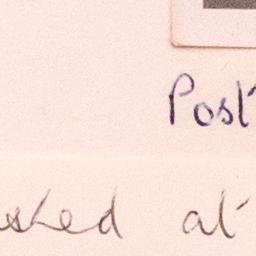 Post
shed at